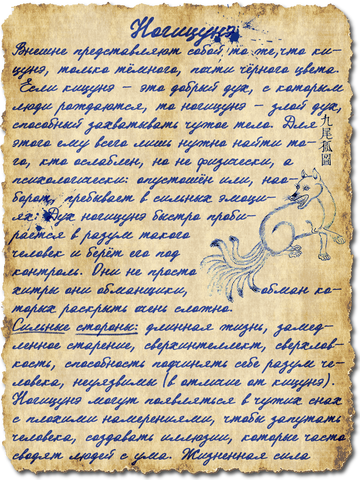 Ногицунэ
Внешне представляют собой то же, что ки-
цунэ, только тёмного, почти чёрного цвета.
Если кицунэ – это добрый дух, с которым
люди рождаются, то ногицунэ – злой дух,
способный захватывать чужое тело. Для
этого ему всего лишь нужно найти то-
го, кто ослаблен, но не физически, а
психологически: опустошён или, нао-
борот, пребывает в сильных эмоци-
ях. Дух ногицунэ быстро проби-
рается в разум такого
человек и берёт его под
контроль. Они не просто
хитры они обманщики, обман ко-
торых раскрыть очень сложно.
Сильные стороны: длинная жизнь, замед-
ленное старение, сверхинтеллект, сверхлов-
кость, способность подчинять себе разум че-
ловека, неуязвимы (в отличие от кицунэ).
Ногицунэ могут появляться в чужих снах
с плохими намерениями, чтобы запутать
человека, создавать иллюзии, которые часто
сводят людей с ума. Жизненная сила
九尾狐圖